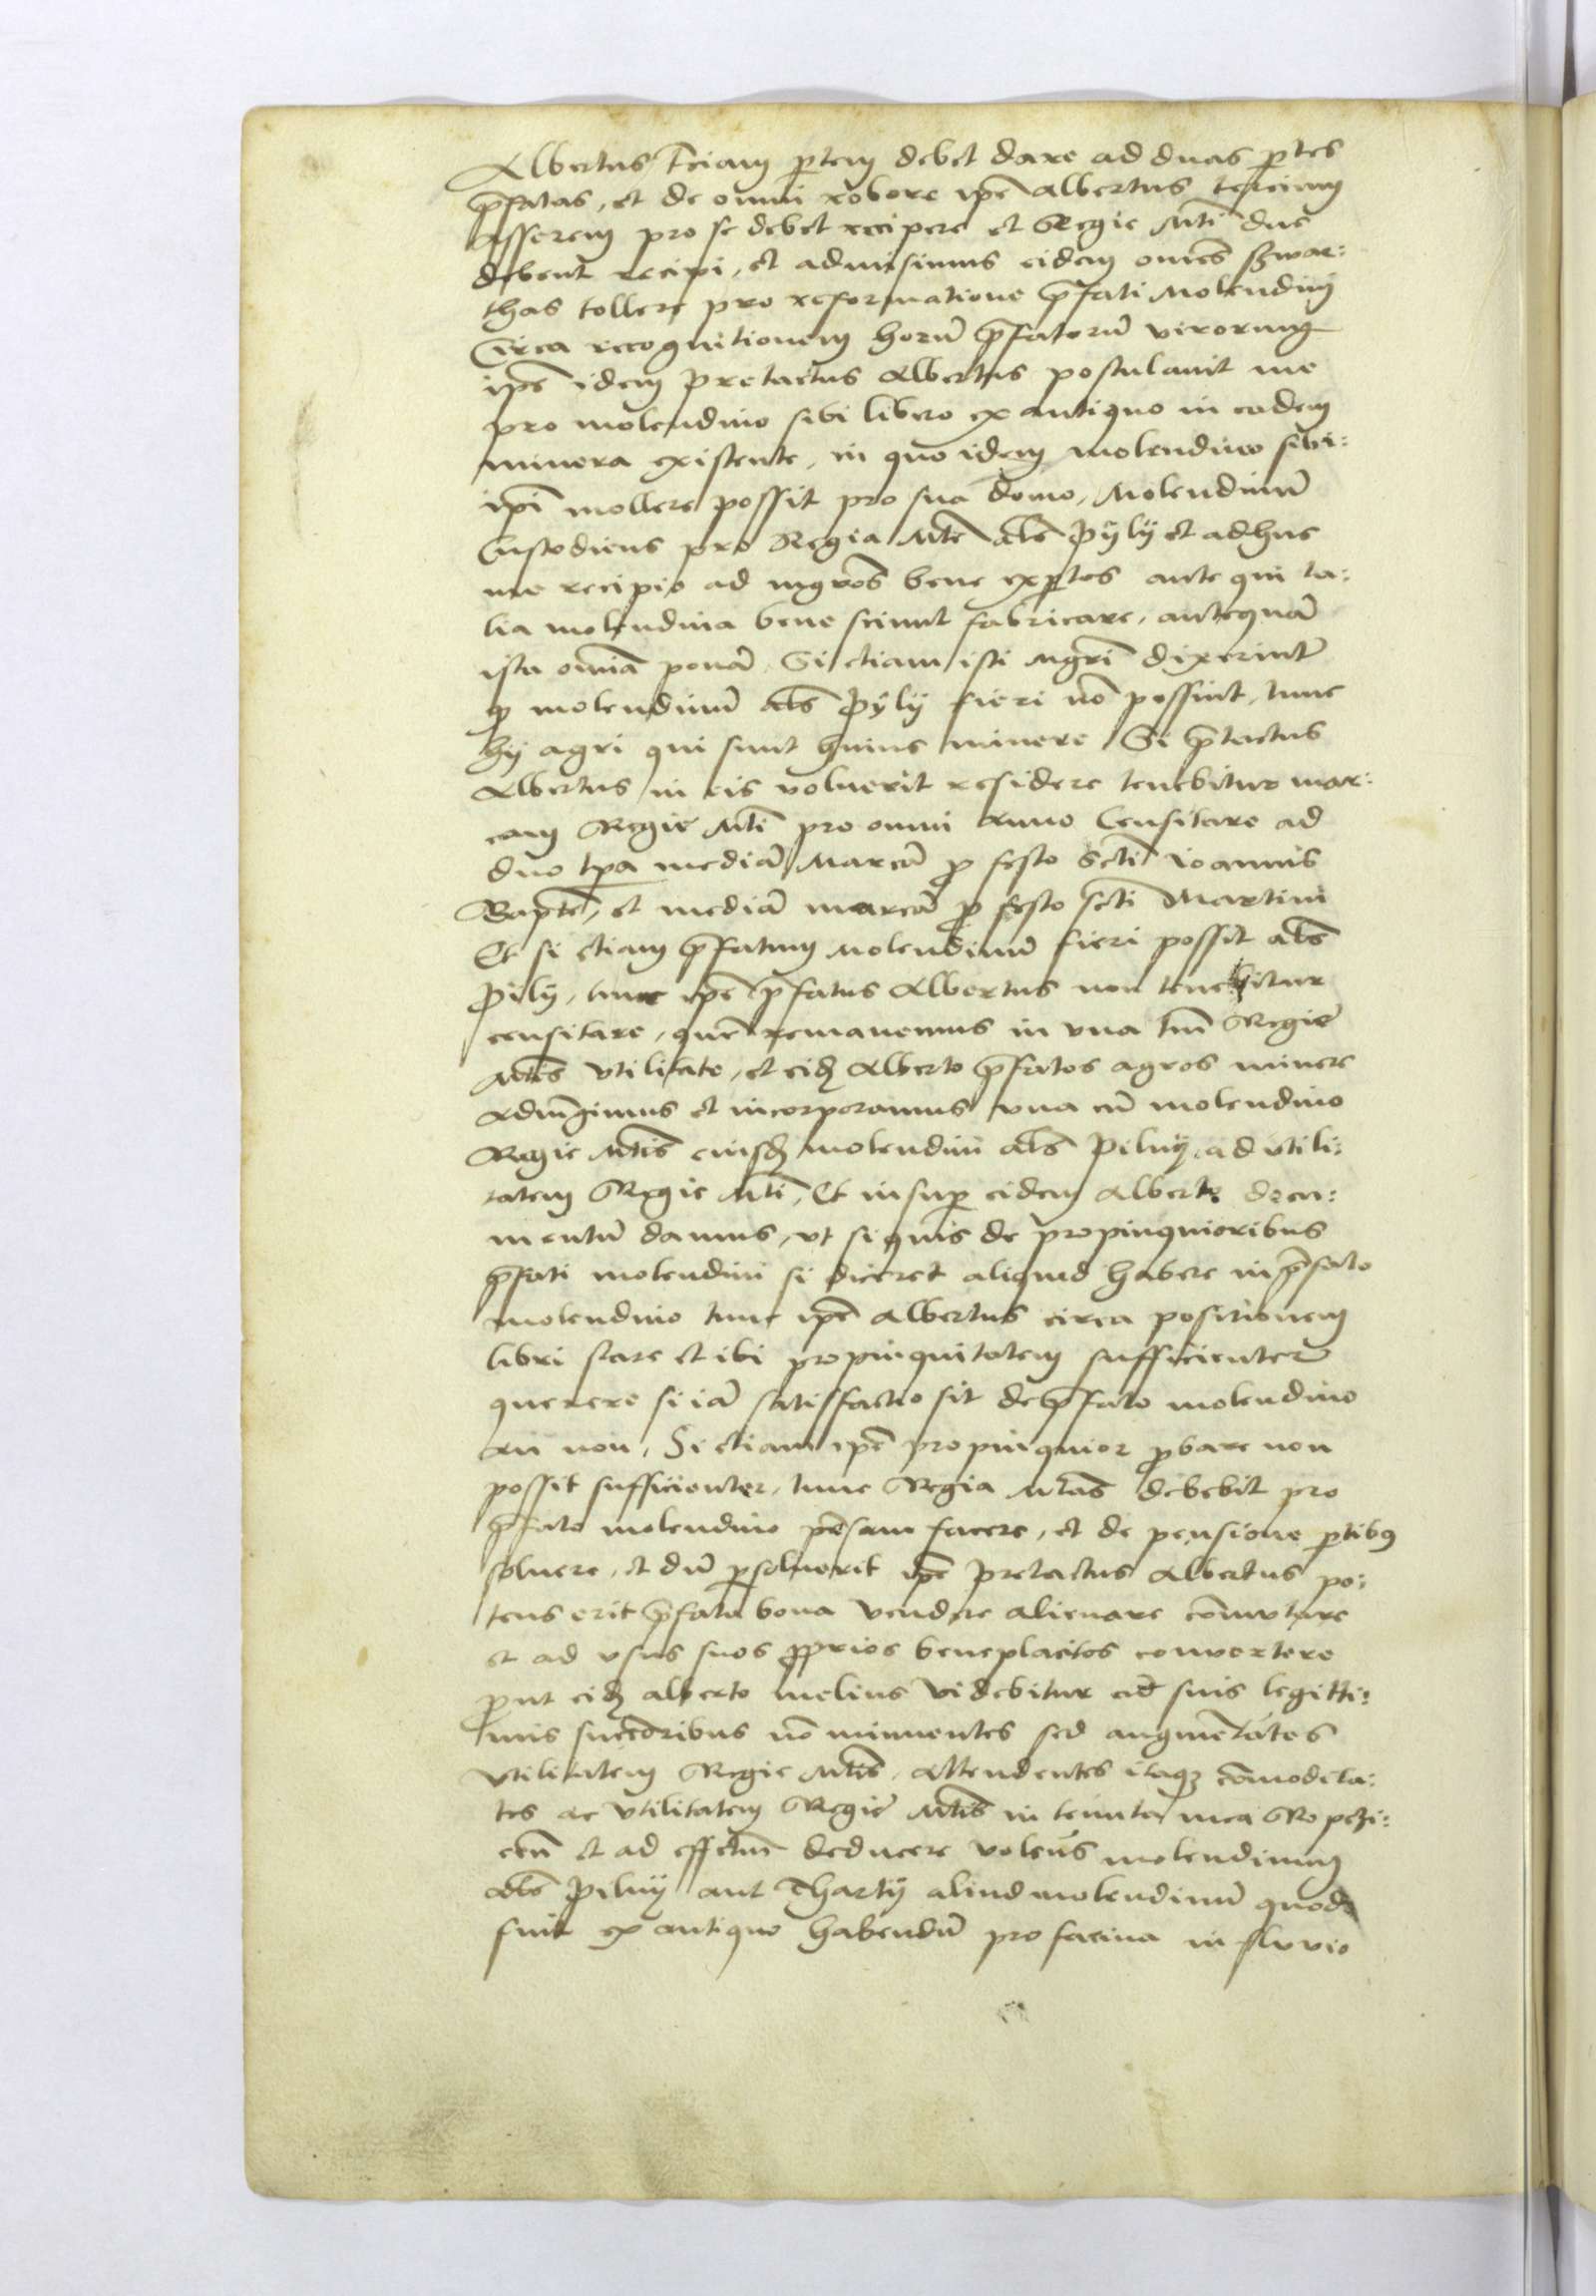 Albertus t̄ciam p̄tem debet dare ad duas p̄tes
p̄fatas, et de omni robore ip̄e Albertus tercium
asserem pro se debet recipere et Regie Mti due
debent recipi, et admisimus eidem omēs szwar:
thas tollere pro reformatione p̄fati Molendinj
Circa recognitionem horū p̄fatorū virorum
ip̄e idem pretactus Albertus postulauit me
pro molendino sibi libero ex antiquo in eadem
minera existente, in quo idem molendino sibi:
ip̄i mollere possit pro sua domo, Molendinū
Custodiens pro Regia Mte al̄s Pÿlÿ et adhuc
me recipio ad mgros bene exp̄tos ante qui ta:
lia molendina bene sciunt fabricare, antequā
ista omīa ponā. Si etiam isti mgri dixerint
q̄ molendinū al̄s Pÿlÿ fieri nō possint, tunc
hÿ agri qui sunt huius minere Si p̄tactus
Albertus in eis voluerit residere tenebitur mar:
cam Regie Mti pro omni anno Censitare ad
duo tp̄a mediā Marcā p̄ festo Scti Joannis
Bapte, et mediā marcā p̄ festo scti Martini
Et si etiam p̄fatum Molendinū fieri possit al̄s
Pilÿ, tunc ip̄e p̄fatus Albertus non tenebitur
censitare, quē remanemus in vna tm̄ Regie
Mtis vtilitate, et eidz Alberto p̄fatos agros minere
Adiūgimus et incorporamus vna cū molendino
Regie Mtis eiusdz molendini al̄s Pilnÿ ad vtili:
tatem Regie Mti, Et insup̄ eidem Alberto docu:
mentū damus, vt si quis de propinquioribus
p̄fati molendini si diceret aliquid habere in p̄fato
molendino tunc ip̄e Albertus circa positionem
libri stare et ibi propinquitatem sufficienter
querere si iā satisfactio sit de p̄fato molendino
An non, Si etiam ip̄e propinquior p̄bare non
possit sufficienter, tunc Regia Mtas debebit pro
p̄fato molendino pēsam facere, et de pensione p̄tibus
soluere, et dū p̄soluerit ip̄e pretactus Albertus po:
tens erit p̄fata bona vendere alienare cōmutare
et ad vsus suos p̄prios beneplacitos conuertere
p̄ut eidz alberto melius videbitur cū suis legitti:
mis succēoribus nō minuentes sed augmētātes
Vtilitatem Regie Mtis, Attendentes itaqz cōmodita:
tes ac vtilitatem Regie Mtis in tenuta mea Ropczi:
cen̄ et ad effectum deducere volens molendinum
al̄s Pilnÿ aut Thartÿ aliud molendinū quod
fuit ex antiquo habendū pro farina in fluuio